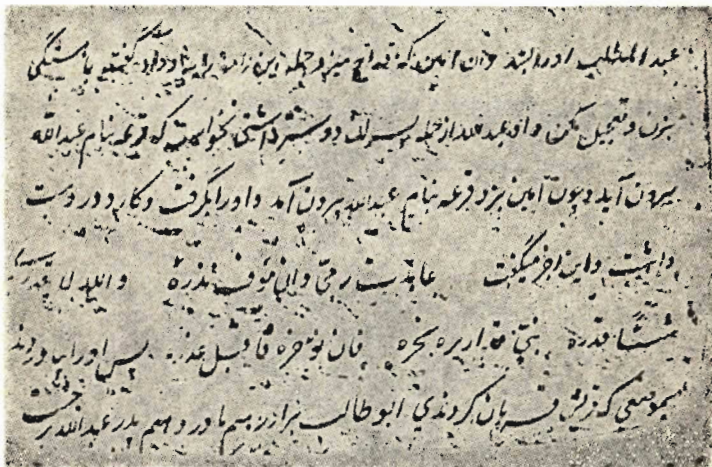 عبد المطلب او را بستد و آن امین که قداح میزد جمله این را بنام او داد گفت باهستگی
بزن و تعجیل مکن و او عبد الله از جمله پسران دوستر داشتی نخواست که قرعه بنام عبدالله
بیرون آید و چون امین بزد قرعه بنام عبدالله بیرون آمد و او را بگرفت و کارد در دست
داشت و این رجز میگفت عاهدت ربی وانی موف نذره والله لا یقدر
شیئا قدره بنی قد ارید نحره فان نوخره فاقبل عذره پس او را بیاوردند
بموضعی که قریش قربان کردندی ابو طالب برادرزهم مادر و هم پدر عبدالله